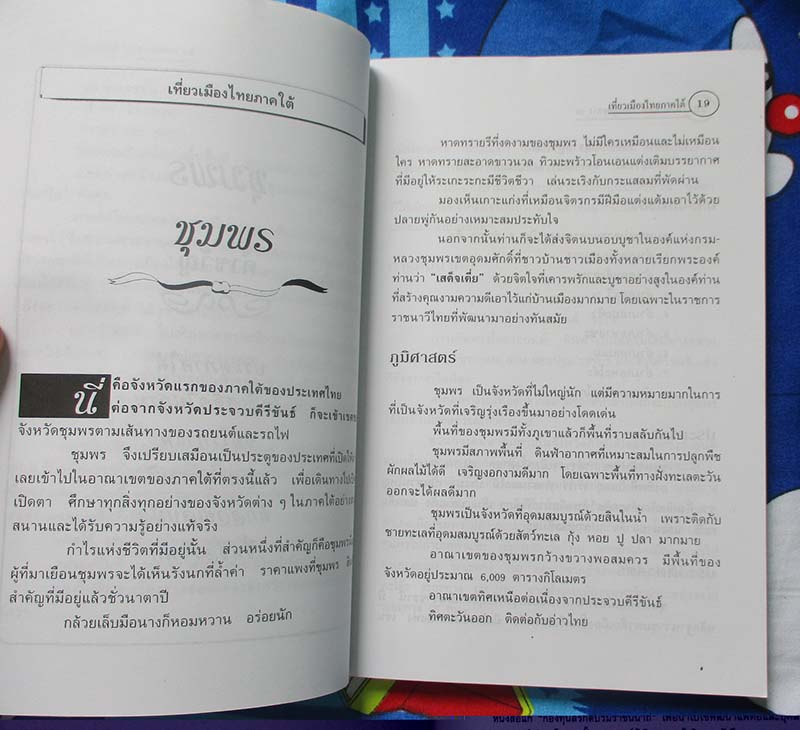 เที่ยวเมืองไทยภาคใต้
ชุมพร
นี่ คือจังหวัดแรกของภาคใต้ของประเทศไทย
ต่อจากจังหวัดประจวบคีรีขันธ์ ก็จะเข้าเขต
จังหวัดชุมพรตามเส้นทางของรถยนต์และรถไฟ
ชุมพร จึงเปรียบเสมือนเป็นประตูของประเทศที่เปิดให้
เลยเข้าไปในอาณาเขตของภาคใต้ที่ตรงนี้แล้ว เพื่อเดินทางไป
เปิดตา ศึกษาทุกสิ่งทุกอย่างของจังหวัดต่าง ๆ ในภาคใต้อย่าง
สนานและได้รับความรู้อย่างแท้จริง
กำไรแห่งชีวิตที่มีอยู่นั้น ส่วนหนึ่งที่สำคัญก็คือชุมพร
ผู้ที่มาเยือนชุมพรจะได้เห็นรังนกที่ล้ำค่า ราคาแพงที่ชุมพร
สำคัญที่มีอยู่แล้วชั่วนาตาปี
กล้วยเล็บมือนางก็หอมหวาน อร่อยนัก
เที่ยวเมืองไทยภาคใต้ 19
หาดทรายรีที่งดงามของชุมพร ไม่มีใครเหมือนและไม่เหมือน
ใคร หาดทรายสะอาดขาวนวล ทิวมะพร้าวโอนเอนแต่งเติมบรรยากาศ
ที่มีอยู่ให้ระเกะระกะมีชีวิตชีวา เล่นระเริงกับกระแสลมที่พัดผ่าน
มองเห็นเกาะแก่งที่เหมือนจิตรกรมีฝีมือแต่งแต้มเอาไว้ด้วย
ปลายพู่กันอย่างเหมาะสมประทับใจ
นอกจากนั้นท่านก็จะได้ส่งจิตนบนอบบูชาในองค์แห่งกรม-
หลวงชุมพรเขตอุดมศักดิ์ที่ชาวบ้านชาวเมืองทั้งหลายเรียกพระองค์
ท่านว่า "เสด็จเตี่ย" ด้วยจิตใจที่เคารพรักและบูชาอย่างสูงในองค์ท่าน
ที่สร้างคุณงามความดีเอาไว้แก่บ้านเมืองมากมาย โดยเฉพาะในราชการ
ราชนาวีไทยที่พัฒนามาอย่างทันสมัย
ภูมิศาสตร์
ชุมพร เป็นจังหวัดที่ไม่ใหญ่นัก แต่มีความหมายมากในการ
ที่เป็นจังหวัดที่เจริญรุ่งเรืองขึ้นมาอย่างโดดเด่น
พื้นที่ของชุมพรมีทั้งภูเขาแล้วก็พื้นที่ราบสลับกันไป
ชุมพรมีสภาพพื้นที่ ดินฟ้าอากาศที่เหมาะสมในการปลูกพืช
ผักผลไม้ได้ดี เจริญงอกงามดีมาก โดยเฉพาะพื้นที่ทางฝั่งทะเลตะวัน
ออกจะได้ผลดีมาก
ชุมพรเป็นจังหวัดที่อุดมสมบูรณ์ด้วยสินในน้ำ เพราะติดกับ
ชายทะเลที่อุดมสมบูรณ์ด้วยสัตว์ทะเล กุ้ง หอย ปู ปลา มากมาย
อาณาเขตของชุมพรกว้างขวางพอสมควร มีพื้นที่ของ
จังหวัดอยู่ประมาณ 6,009 ตารางกิโลเมตร
อาณาเขตทิศเหนือต่อเนื่องจากประจวบคีรีขันธ์
ทิศตะวันออก ติดต่อกับอ่าวไทย